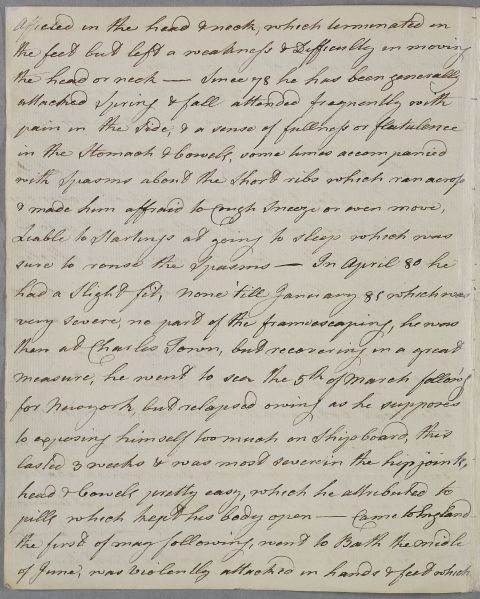 affected in the head & neck, which terminated in
the feet but left a weakness & Difficulty in moving
the head or neck — Since 78 he has been generally
attacked Spring & fall attended frequently with
pain in the Side, & a sense of fullness or flatulence
in the Stomach & bowels, some times accompanied
with Spasms about the Short ribs which ran across
& made him affraid to Cough Sneeze or even move,
Liable to Startings at going to sleep which was
sure to rouse the Spasms — In April 80 he
had a Slight fit, none 'till January 81 which was
very severe, no part of the frame escaping, he was
then at Charles Town, but recovering in a great
measure, he went to sea the 5th of March follow'g
for Newyork, but relapsed owing as he supposes
to exposing himself too much on Shipboard, this
lasted 3 weeks & was most severe in the hip joints,
head & bowels pretty easy, which he attributed to
pills which kept his body open — Came to England
the first of may following, went to Bath the midle
of June, was violently attacked in hands & feet which